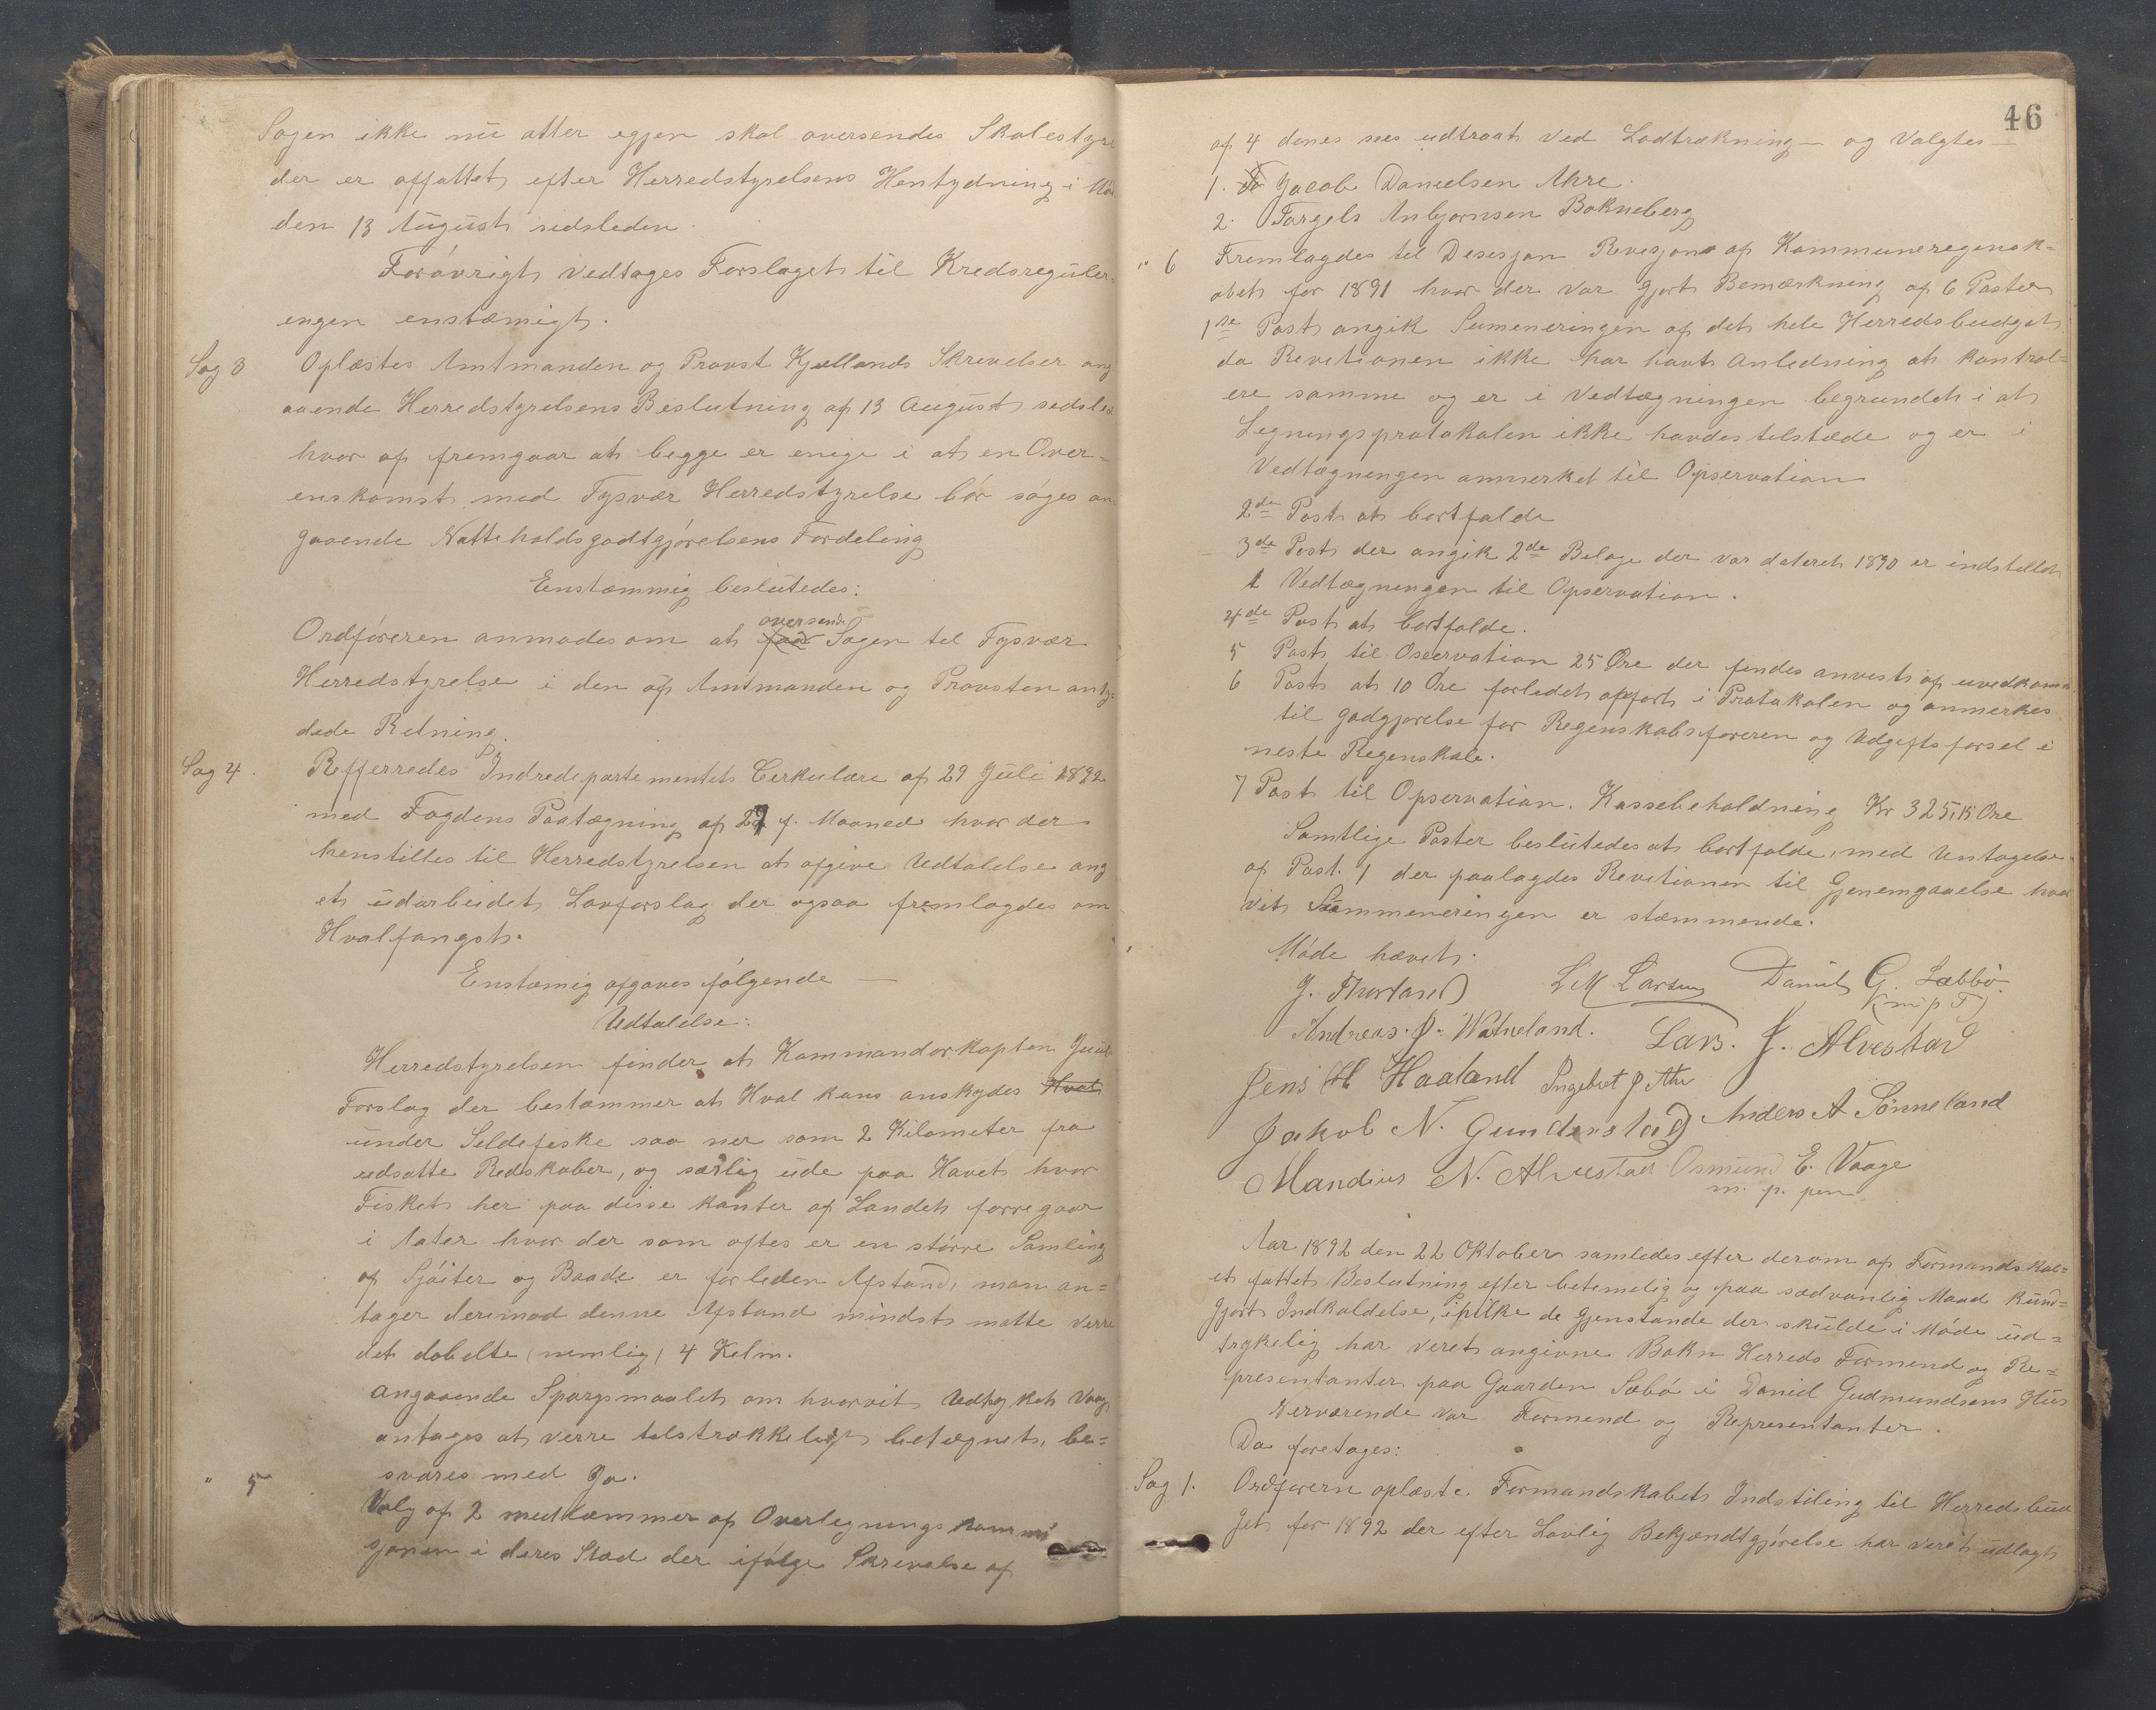 Sagen ikke nu atter egjen skal oversendes Skolestyre
der er affattet efter Herredstyrelsens Hentydning i
den 13 August sidsleden.
Forøvrigt vedtages Forslaget til Kredsreguler-
engen enstæmigt.
Sag 3 Oplæstes Amtmanden og Provst Kjellands Skrevelser ang
aaende Herredstyrelsens Beslutning af 13 August sedsled
hvor af fremgaar at begge er enige i at en Over-
enskomst med Tysvær Herredstyrelse bør søges an
gaaende Natteholdsgodtgjørelsens Fordeling
Eenstæmmig beslutedes:
oversende
Ordføreren anmodes om at Sagen til Tysvær
Herredstyrelse i den af Amtmanden og Provsten anty-
dede Retning.
Sag 4. Refferredes Indredepartementets Cerkulære af 29 Juli 1892
med Fogdens Paategning af 27 f. Maaned hvor der
henstilles til Herredstyrelsen at afgive Udtalelse ang
et udarbeidet Lovforslag der ogsaa fremlagdes om
Hvalfangst.
Enstæmig afgaves følgende —
Udtalelse:
Herredstyrelsen finder at Kommandørkapten Juul
Forslag der bestæmmer at Hval kans anskydes Hval
under Seldefiske saa ner som 2 Kilometer fra
udsatte Redskaber, og særlig ude paa Havet hvor
Fisket her paa disse kanter af Landet forregaar
i Nater hvor der som oftes er en større Samling
af Sjøiter og Baade er forleden Afstand, man an-
tager derimod denne Afstand mindst matte verre
det dobelte (nemlig) 4 Kelm.
Angaaende Spørgsmaalet om hvorvit Udtrykket Vaag
antages at verre telstrækkeligt betegnet, be-
svares med Ja.
" 5 Valg af 2 medlæmmer af Overlegningskommi
sjonen i deres Sted der ifølge Skrevelse af
46
af 4 denes sees udtraat ved Lodtrækning — og Valgtes —
1. Jacob Danielsen Akre.
2. Torgels Anbjørnsen Bokneberg
" 6 Fremlagdes til Desesjon Revesjon af Kommuneregensk-
abet for 1891 hvor der var gjort Bemærkning af 6 Poster
1ste Post angik Sumeneringen af det hele Herredsbudget
da Revetionen ikke har havt Anledning at kontrol-
ere samme og er i Vedtægningen begrundet i at
Legningsprotokolen ikke havdes telstæde og er i
Vedtægningen anmerket til Opservation
2de Post at bortfalde
3de Post der angik 2de Belage der var dateret 1890 er indstellet
i Vedtægningen til Opservation.
4de Post at bortfalde.
5 Post til Oservation 25 Øre der findes anvist af uvedkomm
6 Post at 10 Øre forledet opført i Protokolen og anmerkes
til godgjørelse for Regenskabsføreren og Udgiftsførsel i
neste Regenskab.
7 Post til Opservation. Kassebeholdning Kr 325,15 Øre
Samtlige Poster beslutedes at bortfalde, med Untagelse
af Post. 1 der paalagdes Revetionen til Gjenemgaaelse hvor
vit Summeneringen er stæmmende.
Møde hævet.
L M Larsen Daniel G. Sæbbø.
Andreas. J. Watneland. Lars. J. Alvestad
Jens H Haaland Ingebret J Are
Jakob N. Gundersstad Anders A Sønneland
Mandius N. Alvestad Osmund E. Vaage
m. p. pen
Aar 1892 den 22 Oktober samledes efter derom af Formandskab-
et fattet Beslutning efter betimelig og paa sædvanlig Maad kund-
gjort Indkaldelse, ihvilke de Gjenstande der skulde i Møde ud-
trykelig har veret angivne Bokn Herreds Formend og Re-
presentanter paa Gaarden Sæbø i Daniel Gudmundsens Hus
Verværende var Formend og Representanter.
Da foretages:
Sag 1. Ordførern oplæste Formandskabets Indstiling til Herredsbud
get for 1892 der efter Lovlig Bekjændtgjørelse har veret udlagt